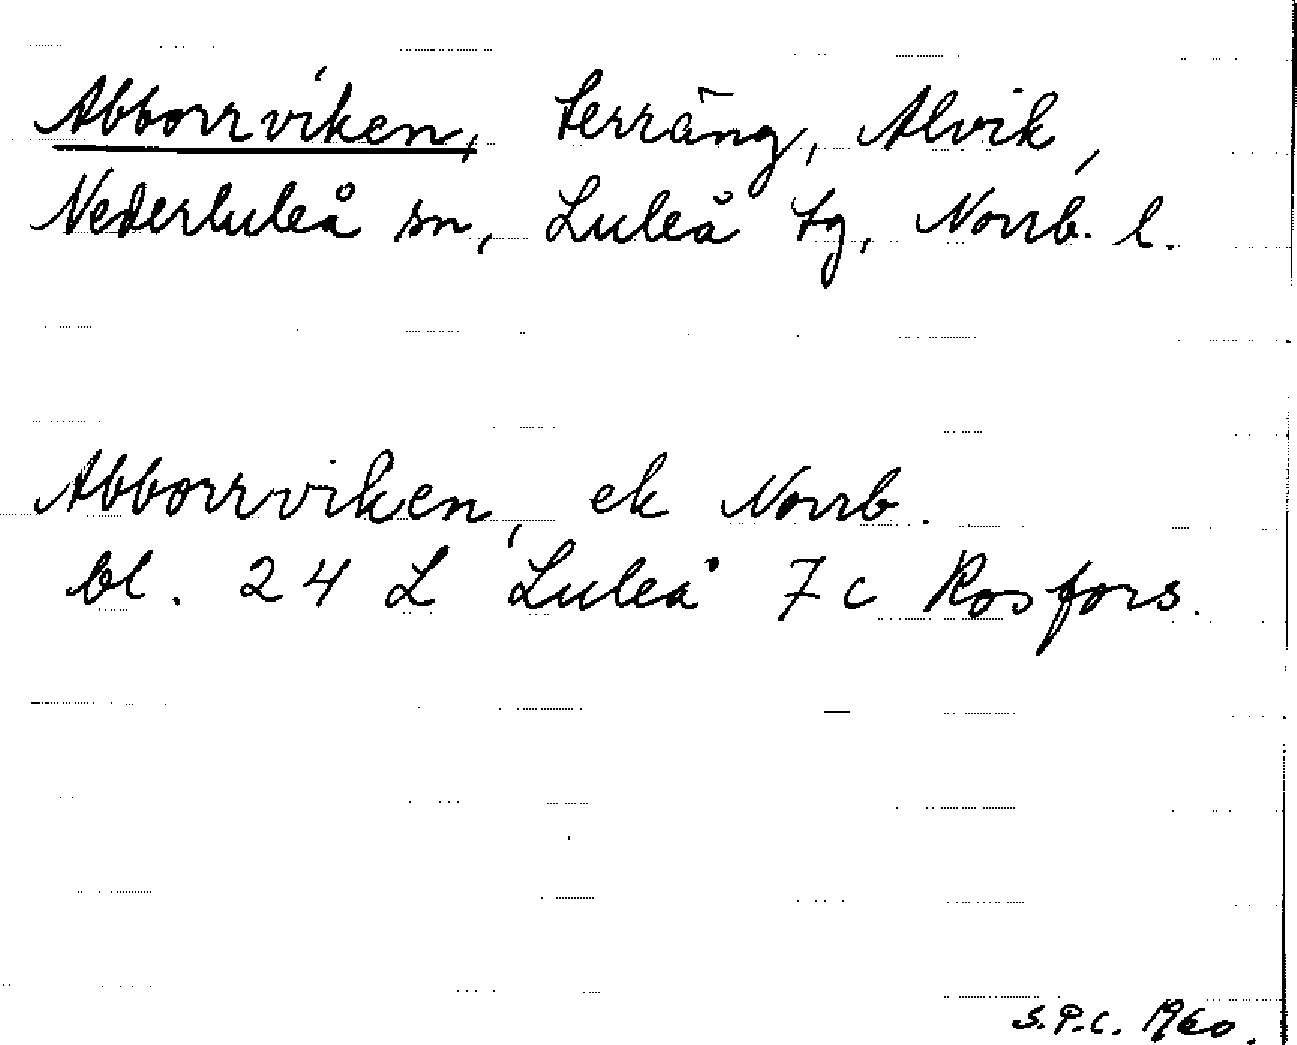 Abborrviken, terräng, Alvik,
Nederluleå sn, Luleå tg, Norrb. l.
Abborrviken, ek Norrb.
bl. 24 L Luleå 7c Rosfors.
S.P.C. 1960.